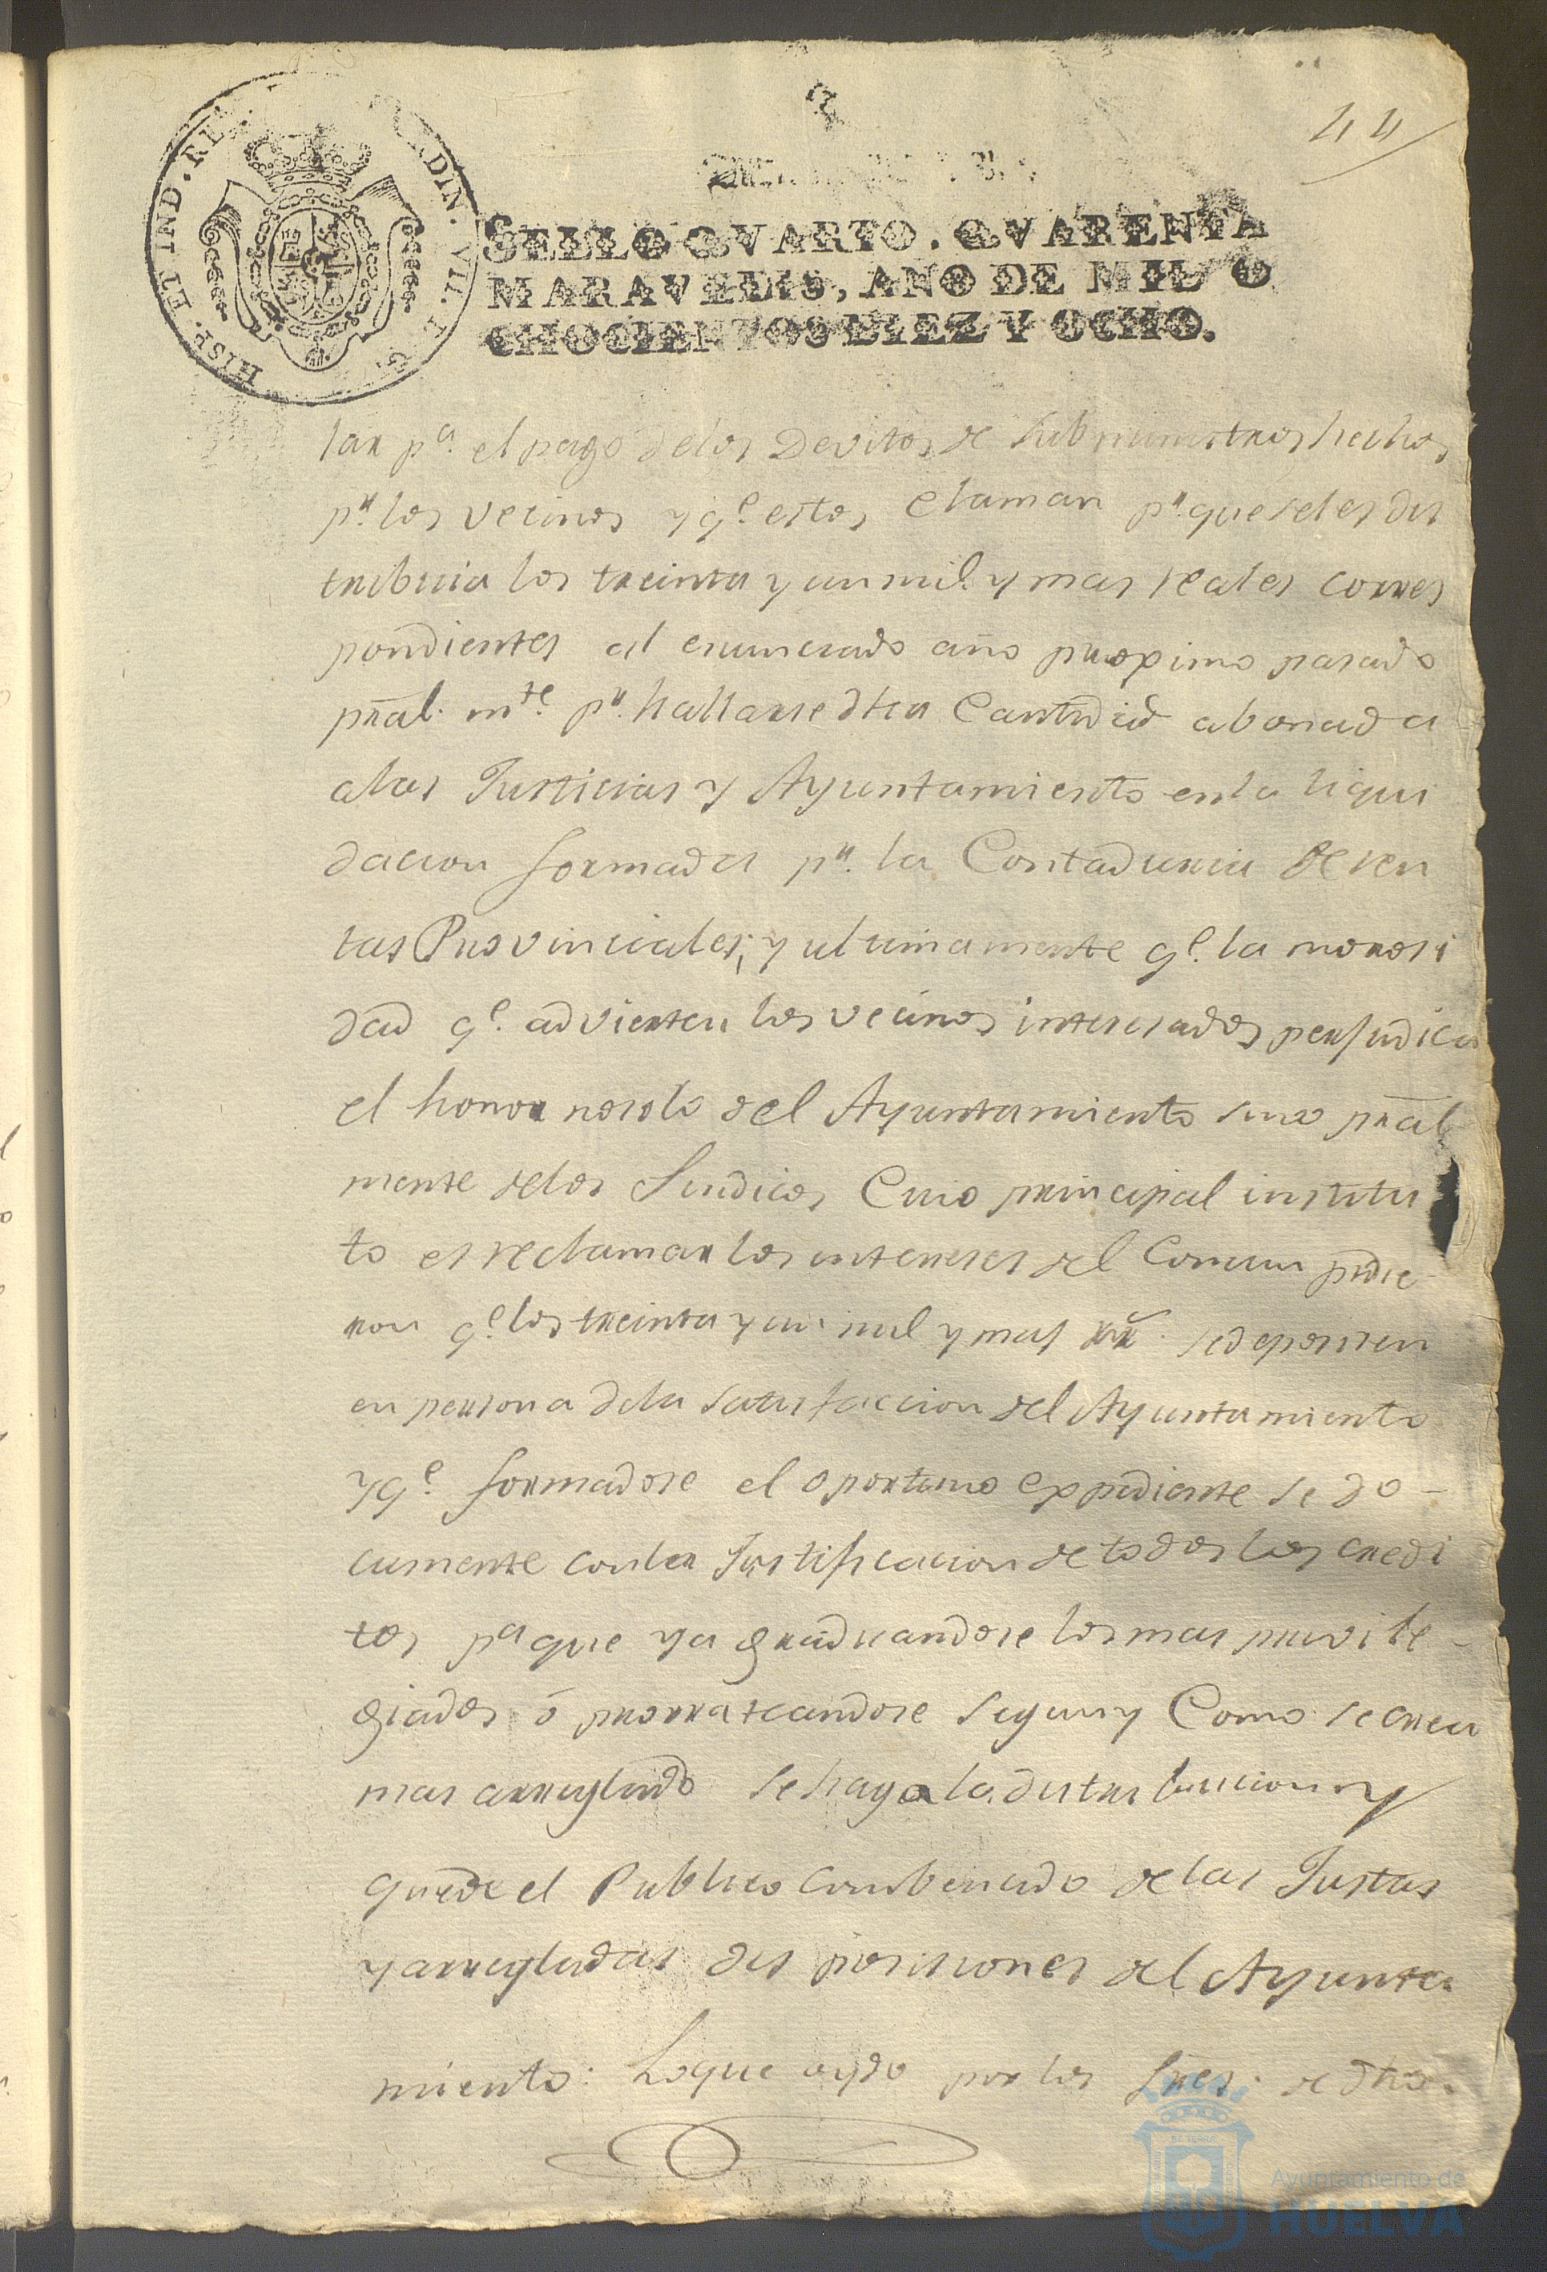 44
HISP. ET IND. RE
DIN. VII. D. G.
SELLO QVARTO. QVARENTA
MARAVEDIS, AÑO DE MIL O
CHOCIENTOS DIEZ Y OCHO.
lar pa. el pago delos Devitos de subministros hechos
pr. los vecinos y qe. estos claman pr. que seles dis
tribuia los treinta y un mil y mas reales corres
pondientes al enumerado año proximo pasado
pral. mte. pr. hallarse dha Cantidad abonada
alas Justicias y Ayuntamiento enla liqui
dacion formada pr. la Contaduria de ren
tas Provinciales; y ultimamente qe. la morosi
dad qe. advierten los vecinos interesados perjudica
el honor nosolo del Ayuntamiento sino pral
mente delos Sindicos Cuio principal institu
to es reclamar los intereses del Comun pidie-
ron qe. los treinta y un mil y mas rr. sedepositen
en persona dela satisfaccion del Ayuntamiento
yqe. formadose el oportuno expediente se do-
cumente conla Justificacion de todos los credi
tos pa que ya graduandose los mas privile-
giados ó prorrateandose segun y Como se crea
mas arreglado se haga la distribucion y
quede el Publico combencido delas Justas
y arregladas dis posiciones del Ayunta
miento: Loque oydo por los Sres. de dho.
Ayuntamiento de
HUELVA